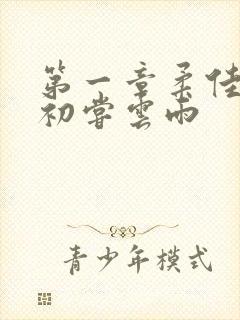 第一章柔佳
初嘗雲雨
青少年模式